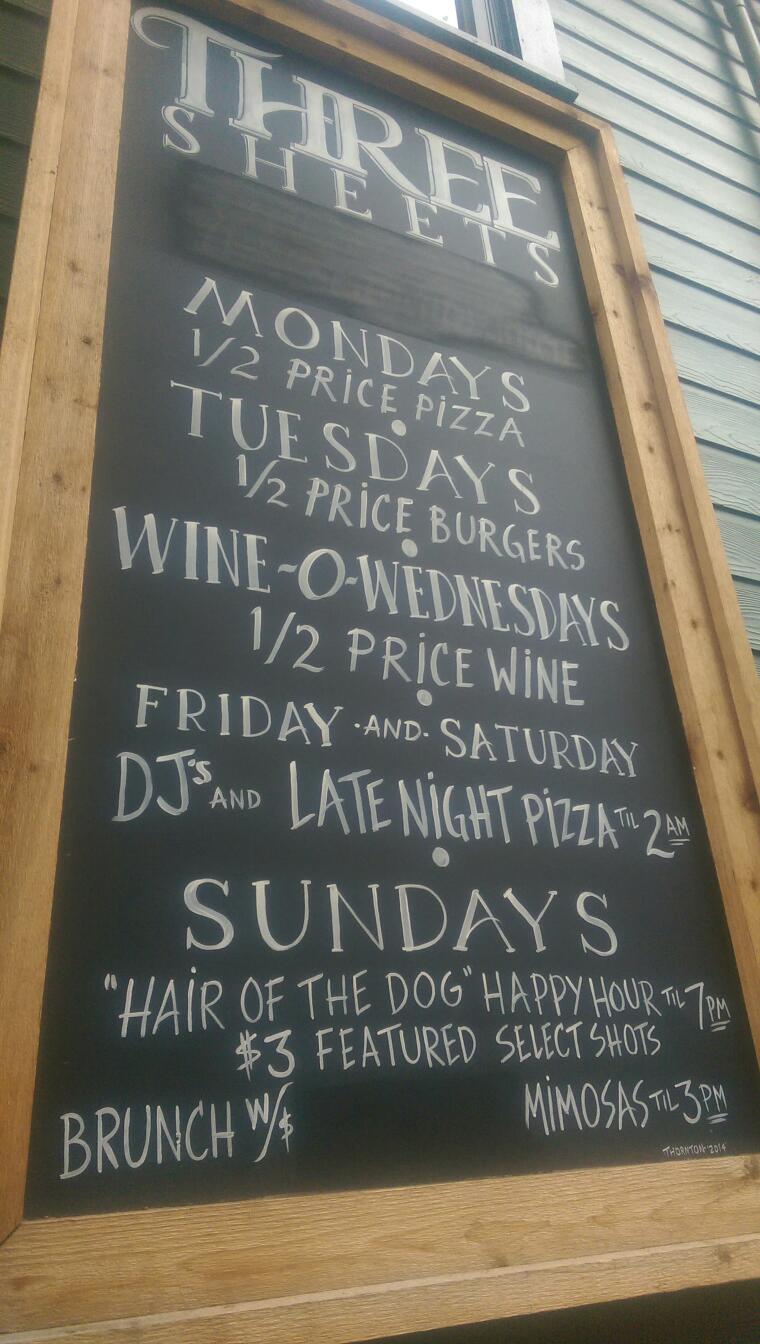 THREE
SHEETS
MONDAYS
1/2 PRICE PIZZA
TUESDAYS
1/2 PRICE BURGERS
WINE-O-WEDNESDAYS
1/2 PRICE WINE
FRIDAY ·AND· SATURDAY
DJ'S AND LATE NIGHT PIZZA TIL 2AM
SUNDAYS
"HAIR OF THE DOG" HAPPY HOUR TIL 7PM
$3 FEATURED SELECT SHOTS
BRUNCH W/$ MIMOSAS TIL 3PM
THORNTON '2014